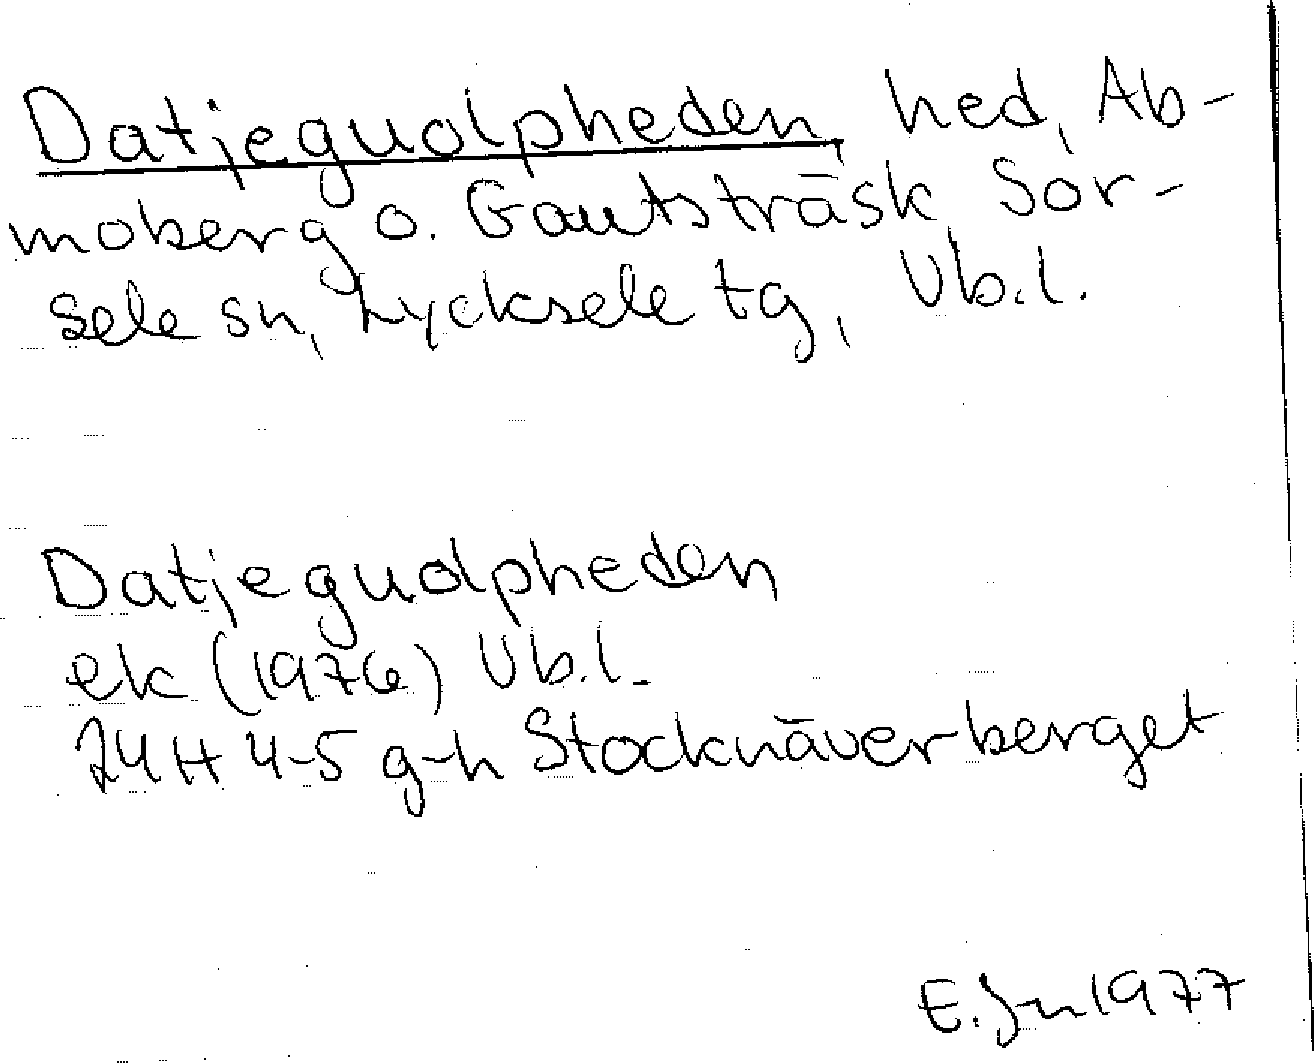 Datjeguolpheden, hed, Ab-
moberg o. Gautsträsk Sor-
sele sn, Lycksele tg, Vb.l.
Datjeguolpheden
ek (1976) Vb.l.
24H 4-5 g-h Stocknäverberget
E.Jn 1977